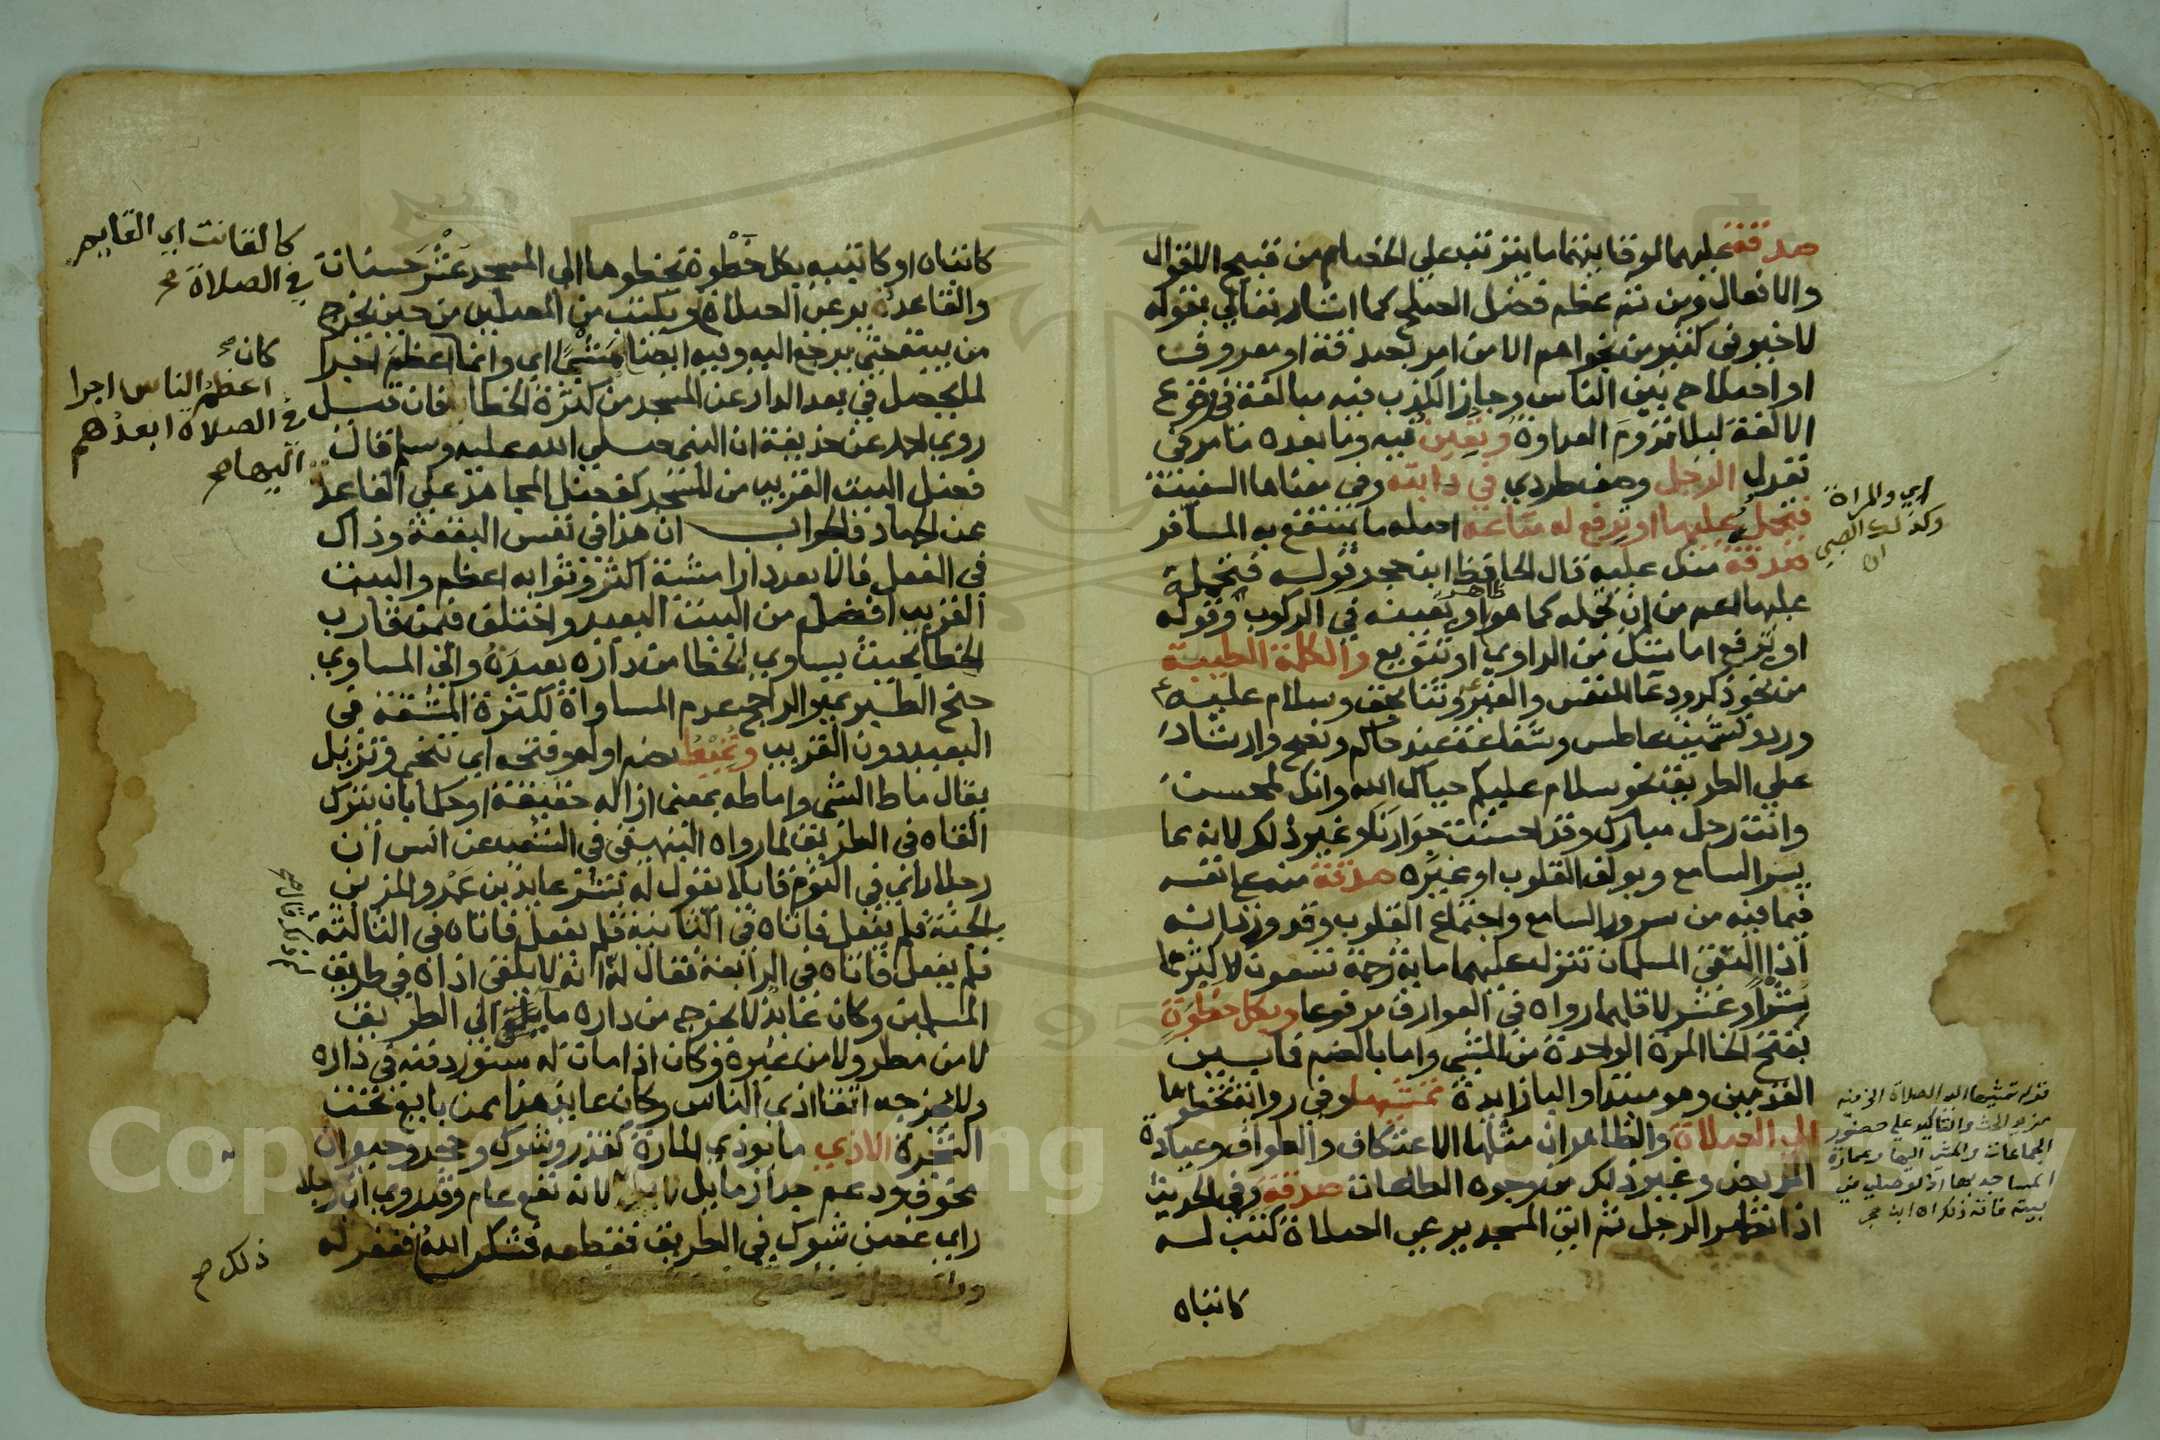 صدقة عليهما لوقايتهما ما يترتب علي الخصام من قبيح الاقوال
والافعال ومن ثم عظم فضل الصلح كما اشار تعالي بقوله
لا خير في كثير من نجواهم الا من امر بصدقة او معروف
او اصلاح بين الناس وجاز الكذب فيه مبالغة في وقوع
الالفة ليلا تدوم العداوة وتعين فيه وما بعده ما مر في
تعدل الرجل وصف طردي في دابته وفي معناها السفينة
فتحمله عليها او ترفع له متاعه احمله ما ينتفع به المسافر
صدقة منك عليه قال الحافظ ابن حجر قوله فتحمله
عليها اعم من ان تحمله كما هو او تعينه في الركوب وقوله
ظاهر
او ترفع اما شك من الراوي او تنويع والكلمة الطيبة
من نحو ذكر ودعا للنفس والغير وثنا بحق وسلام عليه
ورده وتشميت عاطس وشفاعة عند حاكم ونصح وارشاد
علي الطريق نحو سلام عليكم حياك الله وانك لمحسن
وانت رجل مبارك وقد احسنت جوارنا وغير ذلك لانه مما
يسر السامع ويولف القلوب او غيره صدقة منه علي نفسه
فيما فيه من سرور السامع واجتماع القلوب وقد ورد انه
اذا التقي المسلمان تنزل عليهما ماية رحمة تسعون لاكثرهما
بشرا وعشر لاقلهما رواه في العوارف مرفوعا وبكل خطوة
بفتح الخا المرة الواحدة من المشي واما بالضم فما بين
القدمين وهو مبتدا والبا زايدة تمشيها وفي رواية تخطوها
الي الصلاة والظاهر ان مثلها الاعتكاف والطواف وعيادة
المريض وغير ذلك من وجوه الطاعات صدقة وفي الحديث
اذا تطهر الرجل ثم اتي المسجد يرعي الصلاة كتب له
كاتباه
اي والمراة
وكذلك الصبي
قوله تمشيها الي الصلاة الخ فيه
مزيد الحث والتاكيد علي حضور
الجماعات والمشي اليها وعمارة
المساجد بها اذ لو صلي في
بيته فاته ذلك اه ابن حجر
كاتباه او كاتبه بكل خطوة تخطوها الي المسجد عشر حسنات
والقاعد يرعي الصلاة ويكتب من المصلين من حين يخرج
من بيته حتي يرجع اليه وفيه ايضا ممشي اي وانما اعظم اجرا
لما يحصل في بعد الدار عن المسجد من كثرة الخطا فان قيل
روي احمد عن حذيفة ان النبي صلي الله عليه وسلم قال
فضل البيت القريب من المسجد كفضل المجاهد علي القاعد
عن الجهاد فالجواب ان هذا في نفس البقعة وذاك
في الفعل فالابعد دارا مشيه اكثر وثوابه اعظم والبيت
القريب افضل من البيت البعيد واختلف فيمن قارب
الخطا بحيث يساوي الخطا من داره بعيدة والي المساوي
جنح الطبري الراجح عدم المساواة لكثرة المشقة في
البعيد دون القريب وتميط بضم اوله وفتحه اي تنحي وتزيل
يقال ماط الشي واماطه بمعني ازاله حقيقة او حكما بان يترك
القاه في الطريق لما رواه البيهقي في الشعب عن انس ان
رجلا راي في النوم قايلا يقول له بشر عايذ بن عمرو المزني
بالجنة فلم يفعل فاتاه في الثانية فلم يفعل فاتاه في الثالثة
فلم يفعل فاتاه في الرابعة فقال له انه لا يلقي اذاه في طريق
المسلمين وكان عايذ لا يخرج من داره ما الي الطريق
لا من مطر ولا من غيره وكان اذا مات له سنور دفنه في داره
ولا يخرجه اتقا اذي الناس وكان عايذ هذا ممن بايع تحت
الشجرة الاذي ما يوذي المارة كقذر وشوك وحجر وحيوان
مخوف وهدم جدار مايل لانه نفع عام وقد روي ان رجلا
راي غصن شوك في الطريق فقطعه فشكر الله فغفر له
كالقانت اي القايم
في الصلاة صح
كان
اعظم الناس اجرا
في الصلاة ابعدهم
اليها صح
ذلك صح
Copyright © King Saud University
1957